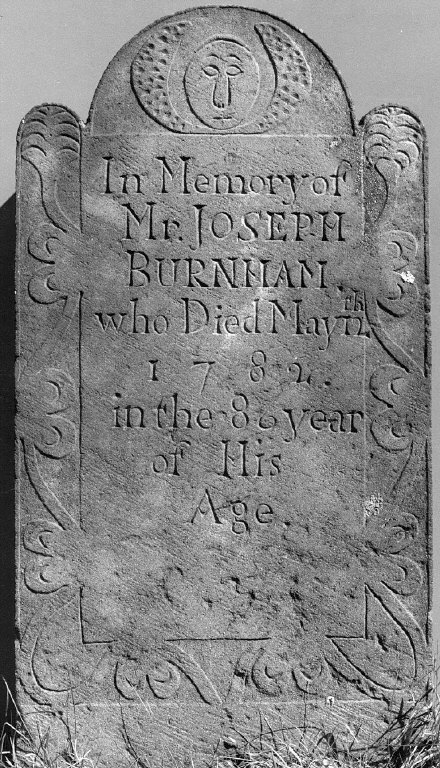 In Memory of
Mr. JOSEPH
BURNHAM.
who Died May 12th
1782.
in the 86 year
of His
Age.